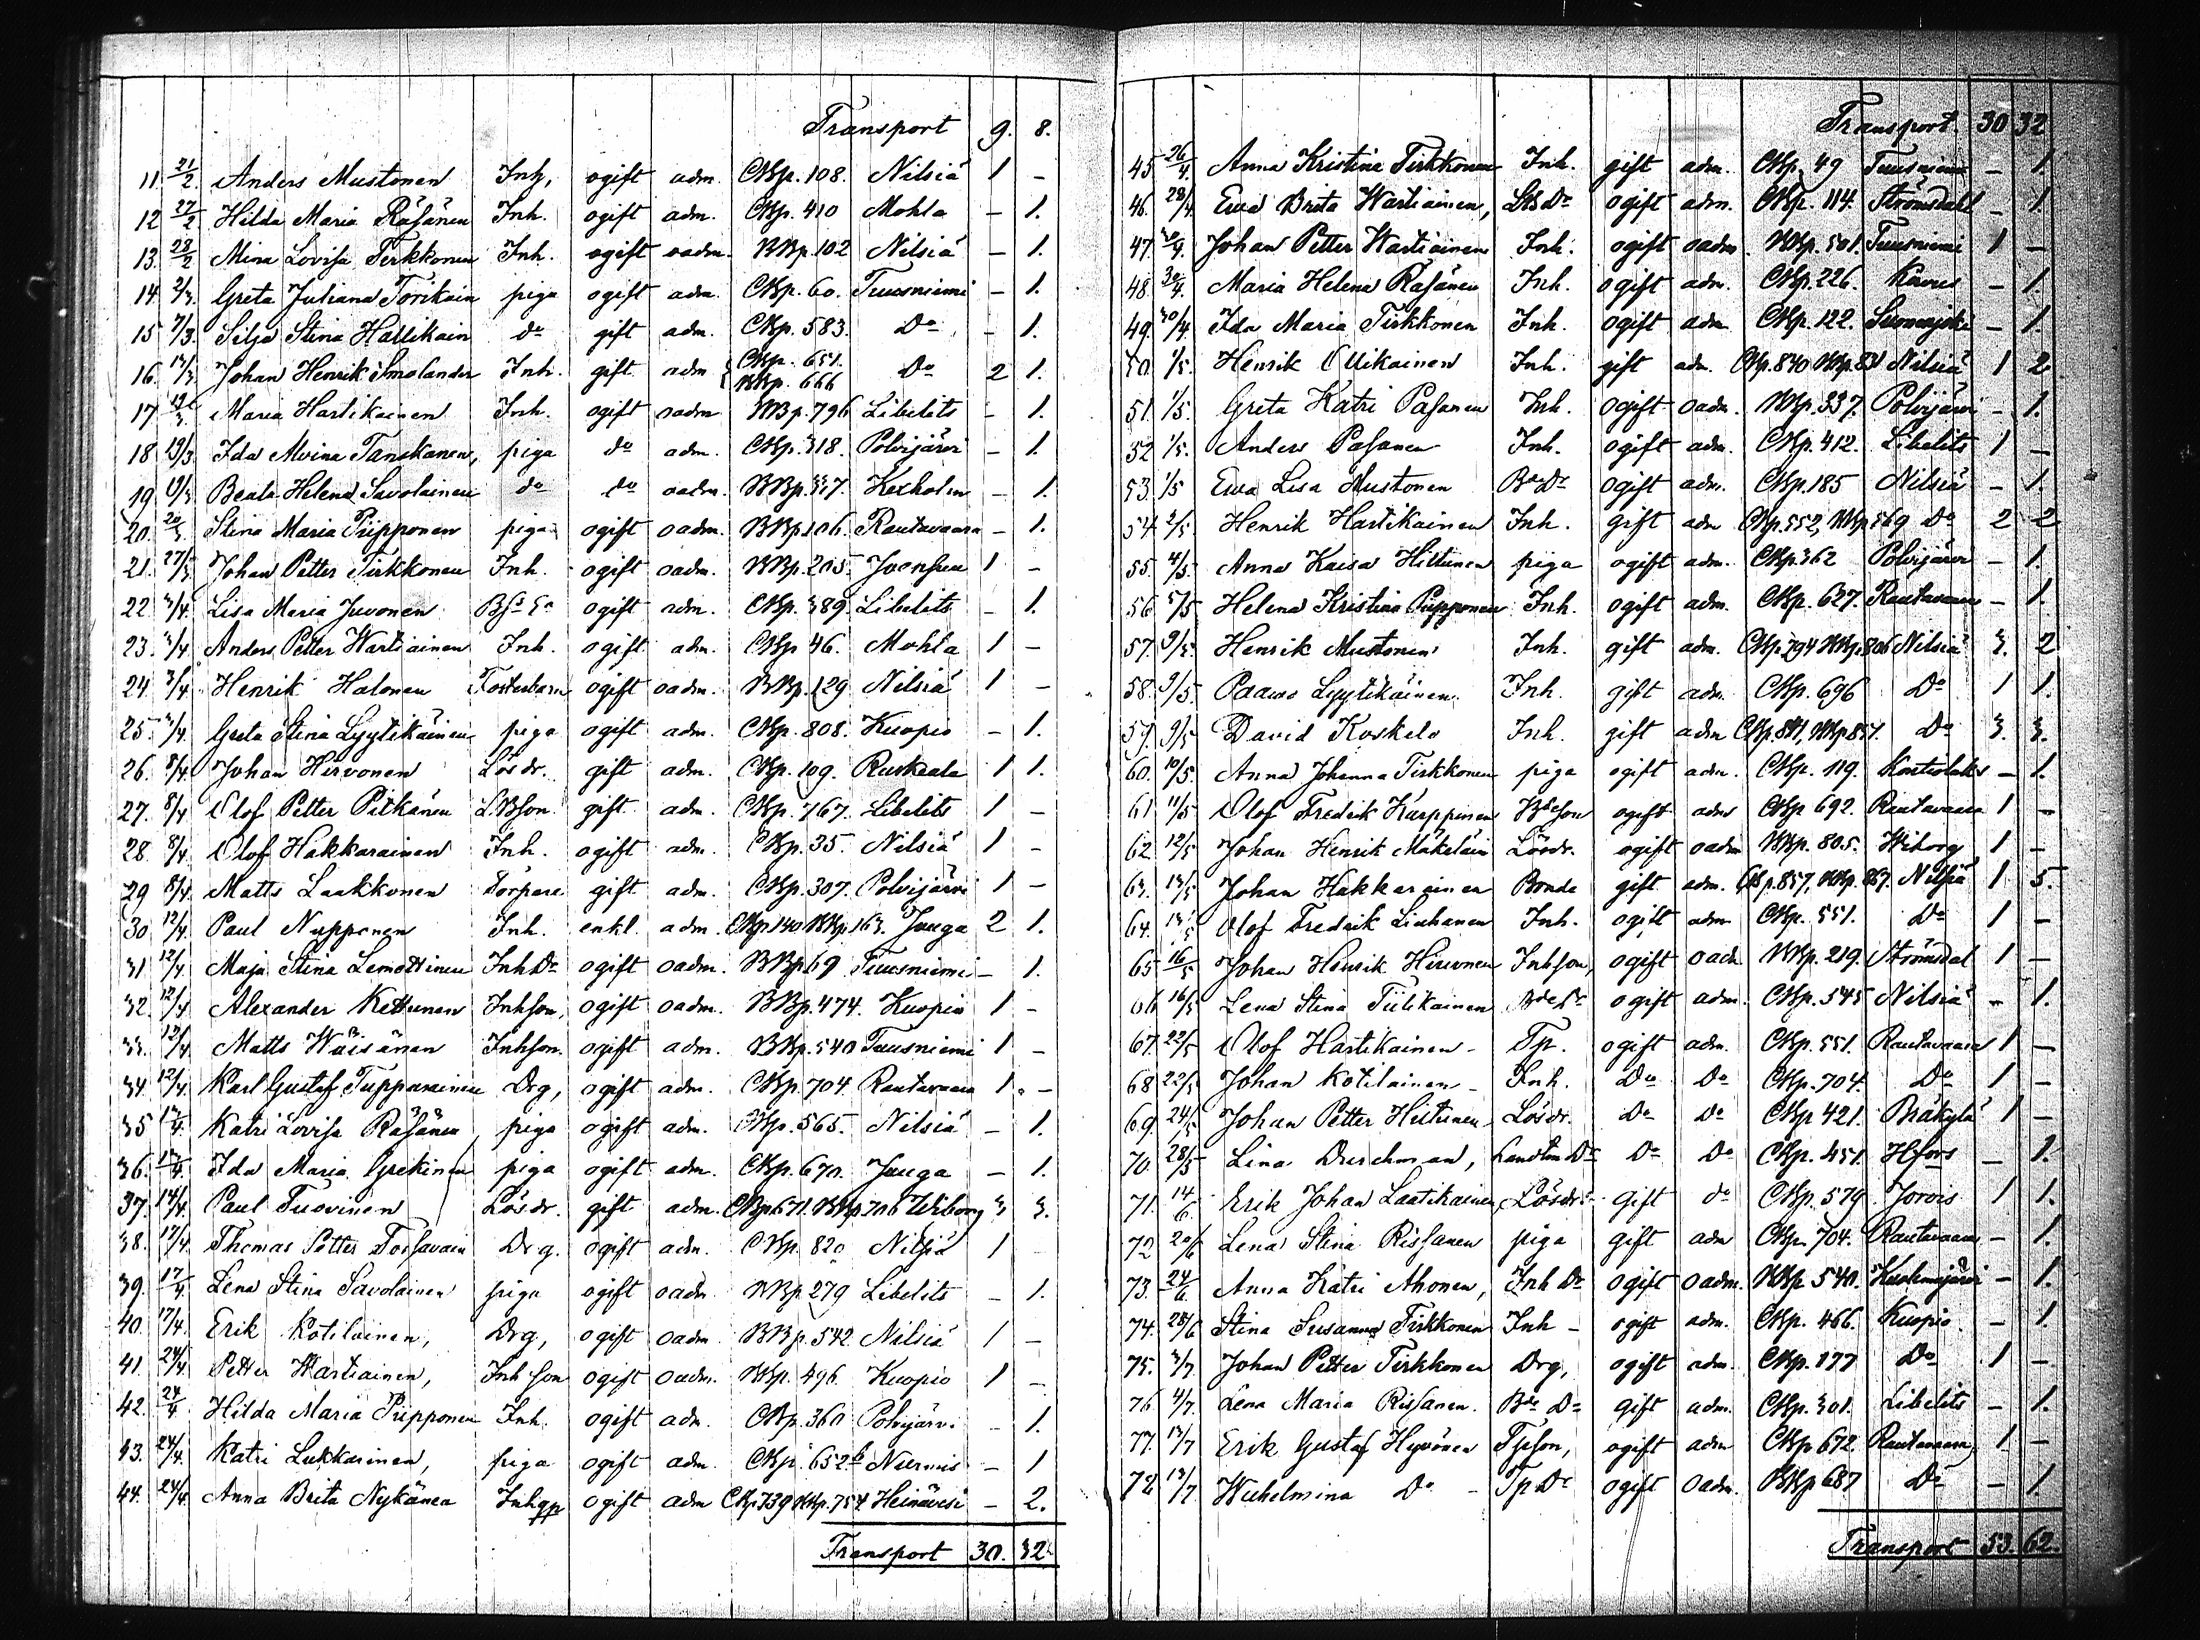 Transport 9. 8.
11. 21/2. Anders Mustonen Inh, ogift adm. CKp. 108. Nilsiä 1 –
12 27/2 Hilda Maria Räsänen Inh. ogift adm. CKp. 410 Mohla – 1.
13. 28/2 Mina Lovisa Tirkkonen Inh. ogift oadm. BKp. 102 Nilsiä – 1.
14. 2/3. Greta Juliana Torikain piga ogift adm. CKp. 60. Tuusniemi – 1.
15 7/3. Silja Stina Hallikain do gift adm. CKp. 583. Do – 1.
16. 13/3 Johan Henrik Smolander Inh. gift adm CKp. 651. BKp. 666 Do 2 1.
17 19/3 Maria Hartikainen Inh. ogift oadm BKp. 796 Libelits – 1.
18 19/3 Ida Alvina Tanskanen, piga do adm. CKp. 318. Polvijärvi – 1.
19 19/3 Beata Helena Savolainen do do oadm. BKp. 337. Kexholm – 1.
20. 20/3. Stina Maria Piipponen piga ogift oadm. BKp. 106. Rautavaara – 1.
21. 27/3 Johan Petter Tirkkonen Inh. ogift oadm. BKp. 205. Joensuu 1 –
22 3/4. Lisa Maria Juvonen ogift adm. CKp. 389. Libelits – 1.
23. 3/4. Anders Petter Wartiainen Inh. ogift adm. CKp 46. Mohla 1 –
24 3/4. Henrik Halonen Fosterbarn ogift oadm. BKp. 129 Nilsiä 1 –
25 3/4. Greta Stina Lyytikäinen piga ogift adm. CKp. 808. Kuopio – 1.
26. 8/4 Johan Hirvonen Lösdr. gift adm. CKp. 109. Ruskeala 1 1.
27. 8/4 Olof Petter Pitkänen L.Bson gift adm. CKp. 767. Libelits 1 –
28. 8/4. Olof Hakkarainen Inh. ogift adm. CKp. 35. Nilsiä 1 –
29 8/4. Matts Laakkonen Torpare gift adm. CKp. 307. Polvijärvi 1 –
30 12/4. Paul Nupponen Inh. enkl. adm. CKp 140 BKp 163. Juuga 2 1.
31 12/4. Maja Stina Lemettinen Inh Do ogift oadm. BKp 69 Tuusniemi – 1.
32. 12/4 Alexander Kettunen Inhson, ogift oadm. BKp. 474. Kuopio 1 –
33. 12/4 Matts Wäisänen Inhson. ogift adm. BKp. 540 Tuusniemi 1 –
34. 12/4 Karl Gustaf Tupparainen Drg, ogift adm. CKp 704 Rautavaara 1. –
35 13/4. Katri Lovisa Räsänen, piga ogift adm. CKp. 565. Nilsiä – 1.
36. 13/4 Ida Maria Grekinen piga ogift adm. CKp. 670. Juuga – 1.
37. 14/4. Paul Tuovinen Lösdr. gift adm. CKp 671. BKp 706 Wiborg 3 3.
38. 17/4 Thomas Petter Torsavain Drg. ogift adm. CKp. 820 Nilsiä 1
39. 17/4 Lena Stina Savolainen piga ogift oadm. BKp 279 Libelits – 1.
40. 17/4. Erik Kotilainen, Drg, ogift oadm. BKp. 542 Nilsiä 1 –
41. 24/4. Petter Wartiainen, Inh son ogift oadm. BKp. 496. Kuopio 1 –
42. 24/4 Hilda Maria Piipponen Inh. ogift adm. CKp. 360 Polvijärvi – 1.
43. 24/4. Katri Lukkarinen, piga ogift adm. CKp. 652 b Nurmis – 1
44. 24/4 Anna Brita Nykänen Inhqp ogift adm CKp 739 BKp. 754 Heinävesi – 2.
Transport 30. 32.
Transport 30 32
45. 26/4. Anna Kristina Tirkkonen Inh. gift adm. CKp. 49 Tuusniemi – 1.
46. 28/4. Ewa Brita Wartiainen, ogift adm. CKp. 114. Strömsdal – 1.
47. 30/4. Johan Petter Wartiainen Inh. ogift oadm. BKp. 501. Tuusniemi 1 –
48. 30/4. Maria Helena Räsänen Inh. ogift adm. CKp. 226. Kaavi – 1
49. 30/4 Ida Maria Tirkkonen Inh. ogift adm CKp. 122. Suonenjoki – 1.
50. 1/5. Henrik Ollikainen Inh. gift adm. CKp. 840 BKp. 831 Nilsiä 1 2
51. 1/5. Greta Katri Pasanen Inh. ogift oadm. BKp. 337. Polvijärvi – 1.
52 1/5. Anders Pasanen Inh. ogift adm. CKp. 412. Libelits 1 –
53. 1/5 Ewa Lisa Mustonen ogift adm. CKp. 185 Nilsiä – 1.
54 2/5. Henrik Hartikainen Inh. gift adm CKp. 552, BKp 569 Do 2 2
55. 4/5. Anna Kaisa Hiltunen piga ogift adm. CKp. 362 Polvijärvi – 1.
56 5/5 Helena Kristina Piipponen Inh. ogift adm. CKp. 627. Rautavaara – 1.
57. 9/5. Henrik Mustonen Inh. gift adm. CKp. 794 BKp. 806 Nilsiä 3. 2
58. 9/5. Paavo Lyytikäinen Inh. gift adm. CKp. 696 Do 1 1.
59. 9/5 David Koskelo Inh. gift adm CKp. 841, BKp 857. Do 3. 3.
60. 10/5. Anna Johanna Tirkkonen piga ogift adm. CKp. 119. Kontiolaks – 1.
61 11/5 Olof Fredrik Karppinen ogift adm CKp 692. Rautavaara 1 –
62 12/5 Johan Henrik Mäkeläin Lösdr. ogift oadm BKp. 805. Wiborg 1 –
63. 13/5 Johan Hakkarainen Bonde gift adm. CKp. 857, BKp. 867. Nilsiä 1 5.
64. 13/5 Olof Fredrik Liuhanen Inh. ogift adm CKp. 551. Do 1 –
65 16/5 Johan Henrik Hirvonen Inhson, ogift oadm BKp. 219. Strömsdal 1 –
66 16/5 Lena Stina Tiilikainen ogift adm. CKp. 545 Nilsiä – 1.
67. 22/5 Olof Hartikainen – Tp. ogift adm. CKp. 551. Rautavaara 1 –
68 22/5 Johan Kotilainen – Inh. Do Do CKp. 704. Do 1 –
69. 24/5 Johan Petter Hiltunen Lösdr. Do Do CKp 421. Bräkylä 1 –
70 28/5 Lina Durchman, Do Do CKp. 451. Hfors – 1.
71. 14/6. Erik Johan Laatikainen, Lösdr. gift do CKp. 579 Jorois 1 1.
72 20/6 Lena Stina Rissanen piga gift adm CKp. 704. Rautavaara – 1.
73. 24/6 Anna Katri Ahonen, Inh Do ogift oadm. BKp 540. – 1.
74. 28/6 Stina Susanna Tirkkonen Inh – ogift adm. CKp. 466. Kuopio – 1
75. 3/7. Johan Petter Tirkkonen Drg, ogift adm. CKp. 177 Do 1 –
76 4/7. Lena Maria Rissanen. gift adm. CKp. 301. Libelits – 1.
77. 13/7 Erik Gustaf Hyvönen Tpson, ogift adm CKp 672. Rautavaara 1 –
72 13/7 Wilhelmina Do – Tp Do ogift oadm. BKp 687 Do – 1.
Transport 53. 62.